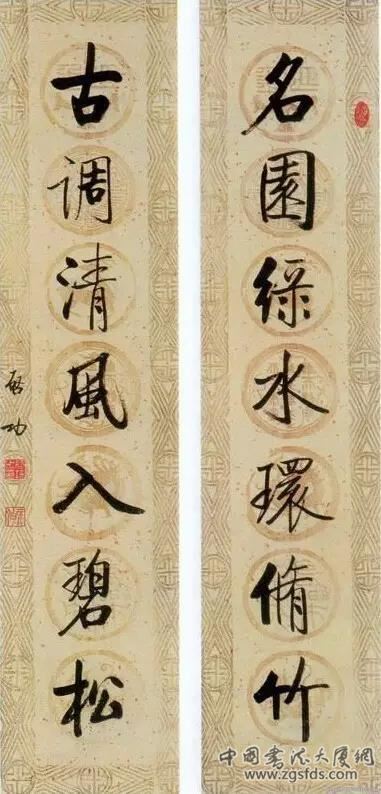 名園綠水環脩竹
古調清風入碧松
啟功
中國書法大廈網
www.zgsfds.com